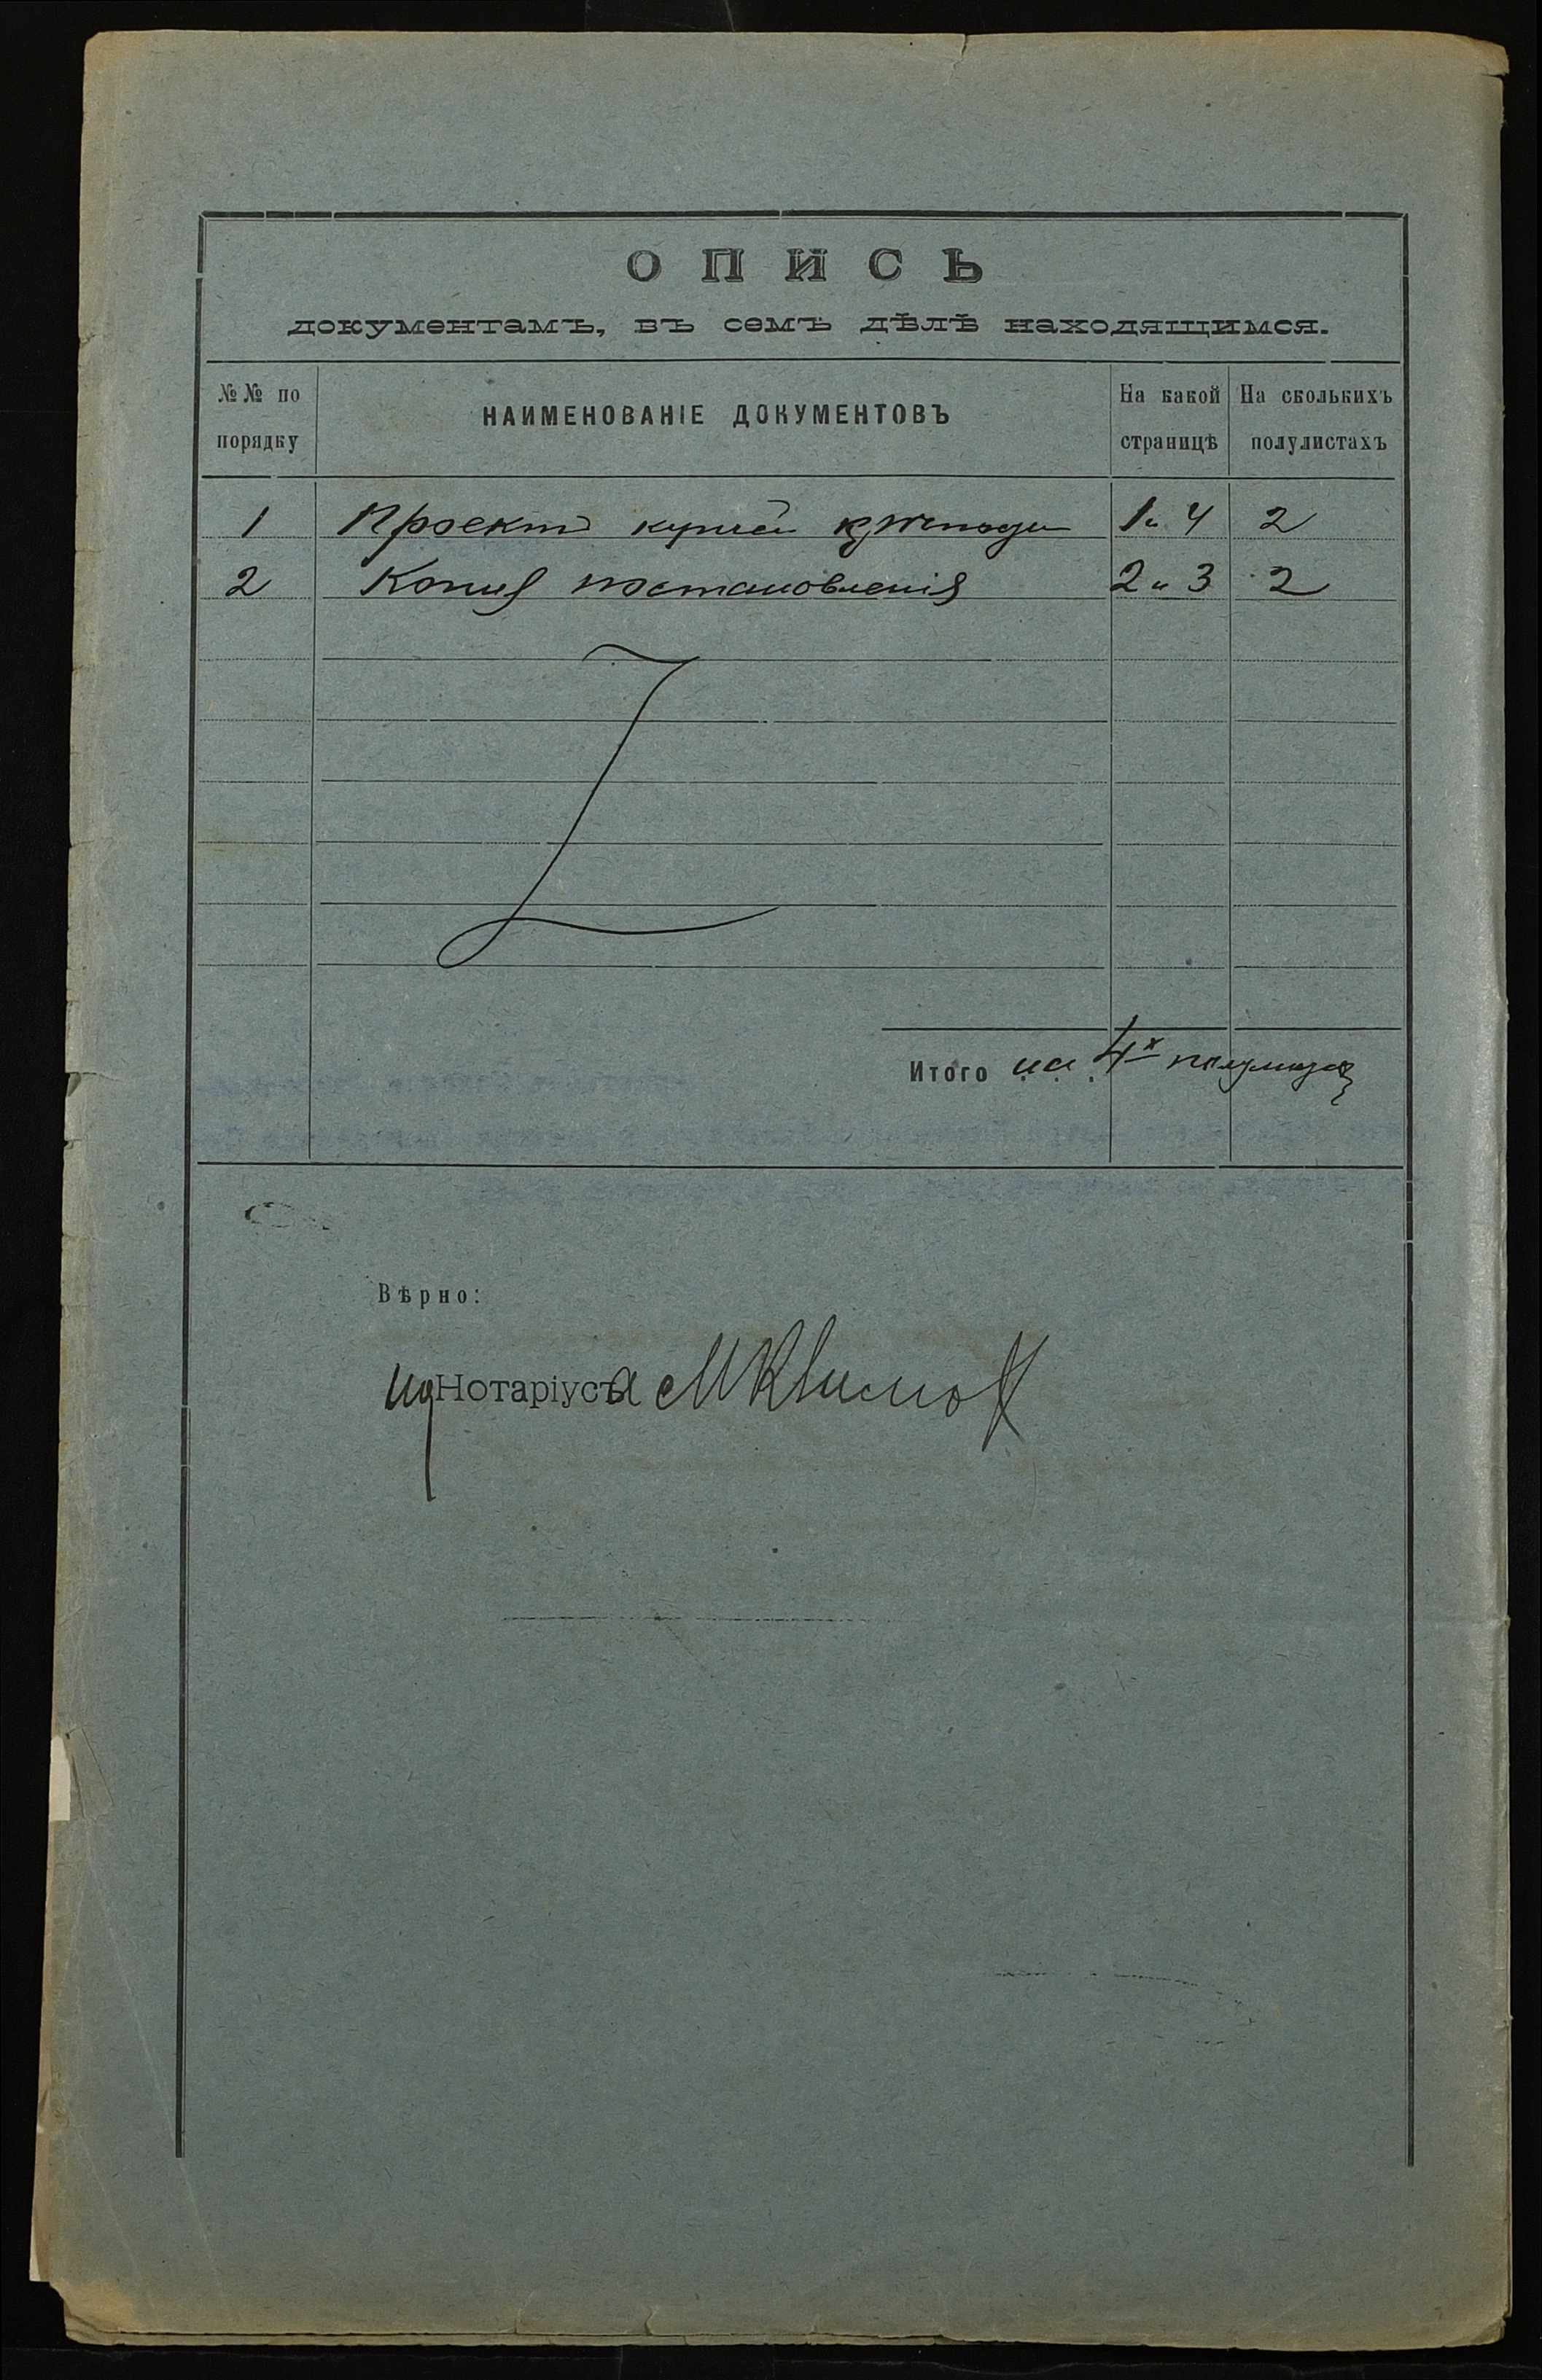 ОПИСЬ
документамъ, въ семъ дѣлѣ находящимся.
№№ по порядку НАИМЕНОВАНІЕ ДОКУМЕНТОВЪ На какой страницѣ На сколькихъ полулистахъ
1 Проектъ купчей крѣпости 1 и 4 2
2 Копия постановленія 2 и 3 2
Итого на 4х полулистах
Вѣрно:
ид Нотаріуса